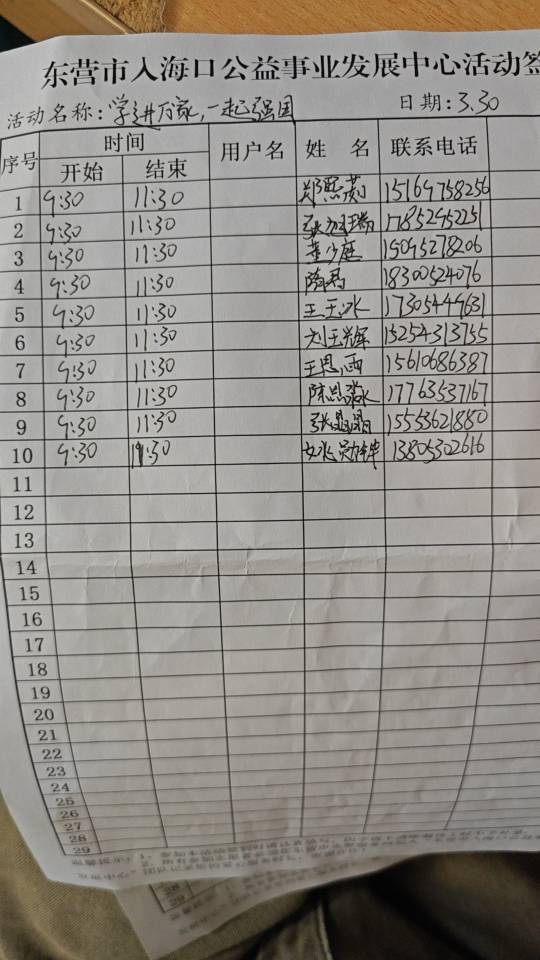 东营市入海口公益事业发展中心活动签
活动名称:学进万家,一起强国 日期:3.30
序号 时间 用户名 姓 名 联系电话
开始 结束
1 9:30 11:30 郑熙 15169758256
2 9:30 11:30 张旭瑞 17852952251
3 9:30 11:30 董少庭 15095278206
4 9:30 11:30 隋易 18300524076
5 9:30 11:30 王玉冰 17305449631
6 9:30 11:30 刘玉辉 15254313755
7 9:30 11:30 王恩西 15610686387
8 9:30 11:30 陈思淼 17763537167
9 9:30 11:30 张晶晶 15553621880
10 9:30 11:30 13805302616
11
12
13
14
15
16
17
18
19
20
21
22
23
24
25
26
27
28
29